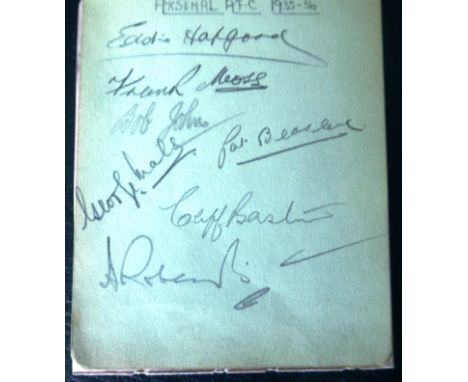 ARSENAL A.F.C 1935-36
Eddie Hapgood
Frank Moss
Bob John
Pat Beasley
George Male
Cliff Bastin
A